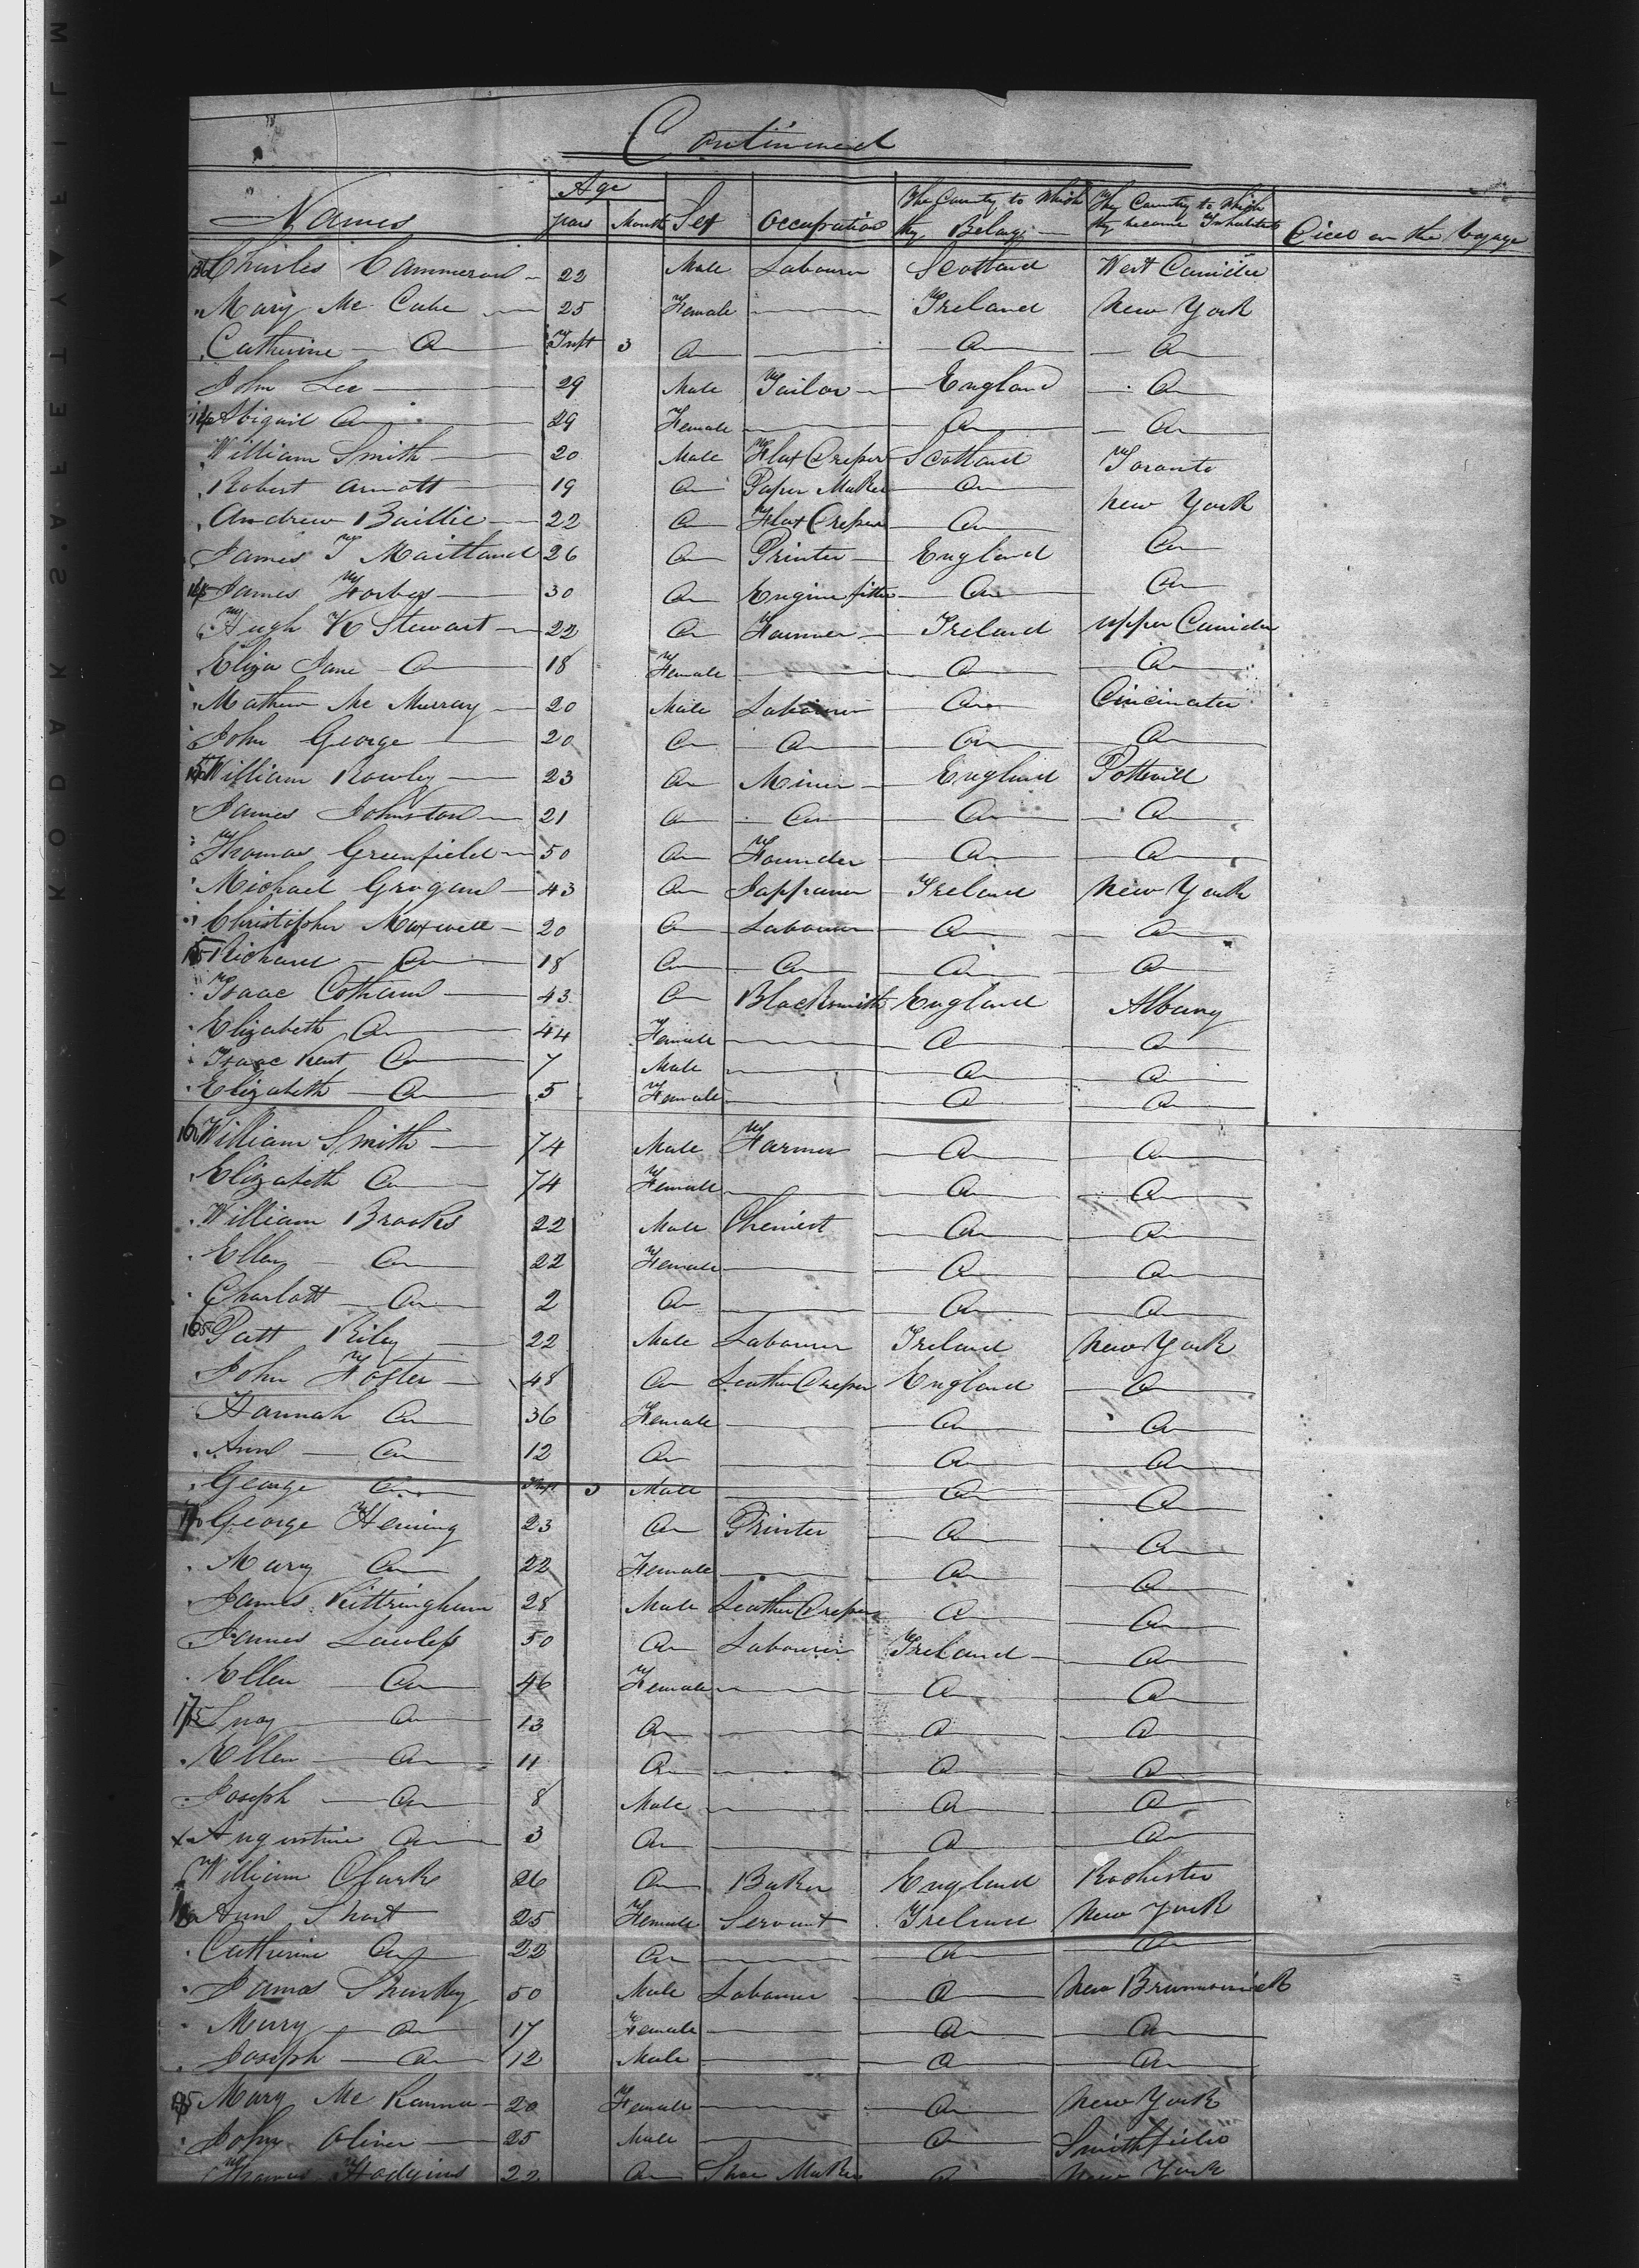 Continued
Names Age years Month Sex Occupation The Country to Which they Belong The Country to Which they became Inhabitants Died on the Voyage
Charles Cammeron 22 Male Labourer Scotland West Canida
Mary Mc Cabe 25 Female Ireland New York
Catherine Do Inft 3 Do Do Do
John Lee 29 Male Tailor England Do
Abigail Do 29 Female Do Do
William Smith 20 Male Flax Dreper Scotland Toronto
Robert Arnott 19 Do Paper Maker Do New York
Andrew Baillie 22 Do Flax Dreper Do Do
James T Maitland 26 Do Printer England Do
James Forbes 30 Do Engine fitter Do Do
Hugh K Stewart 22 Do Farmer Ireland upper Canida
Eliza Jane Do 18 Female Do Do
Mathew Mc Murray 20 Male Labourer Do Cincinater
John George 20 Do Do Do Do
William Rowley 23 Do Miner England Pottsvill
James Johnston 21 Do Do Do Do
Thomas Greenfield 50 Do Founder Do Do
Michael Grogan 43 Do Jappaner Ireland New York
Christopher Maxwell 20 Do Labourer Do Do
155 Richard Do 18 Do Do Do Do
Isaac Cotham 43 Do Blacksmith England Albany
Elizabeth Do 44 Female Do Do
Isaac Kent Do 7 Male Do Do
Elizabeth Do 5 Female Do Do
160 William Smith 74 Male Farmer Do Do
Elizabeth Do 74 Female Do Do
William Brooks 22 Male Chemist Do Do
Ellen Do 22 Female Do Do
Charlott Do 2 Do Do Do
165 Patt Riley 22 Male Labourer Ireland New York
John Foster 48 Do Leather Dreper England Do
Hannah Do 36 Female Do Do
Ann Do 12 Do Do Do
George Do Inft 3 Male Do Do
170 George Hening 23 Do Printer Do Do
Mary Do 22 Female Do Do
James Kittringham 28 Male Leather Dreper Do Do
James Lawless 50 Do Labourer Ireland Do
Ellen Do 46 Female Do Do
175 Do 13 Do Do Do
Ellen Do 11 Do Do Do
Joseph Do 8 Male Do Do
Augustine Do 3 Do Do Do
William Clark 26 Do Baker England Rochester
180 Ann Short 25 Female Servant Ireland New York
Catherine Do 22 Do Do Do
James Sharkey 50 Male Labourer Do New Brunswick
Mary Do 17 Female Do Do
Joseph Do 12 Male Do Do
185 Mary Mc Kanna 20 Female Do New York
John Oliver 25 Male Do Smithfield
Thomas Hodgins 22 Do Shoe Maker Do New York
KODAK·SAFETY▲FILM